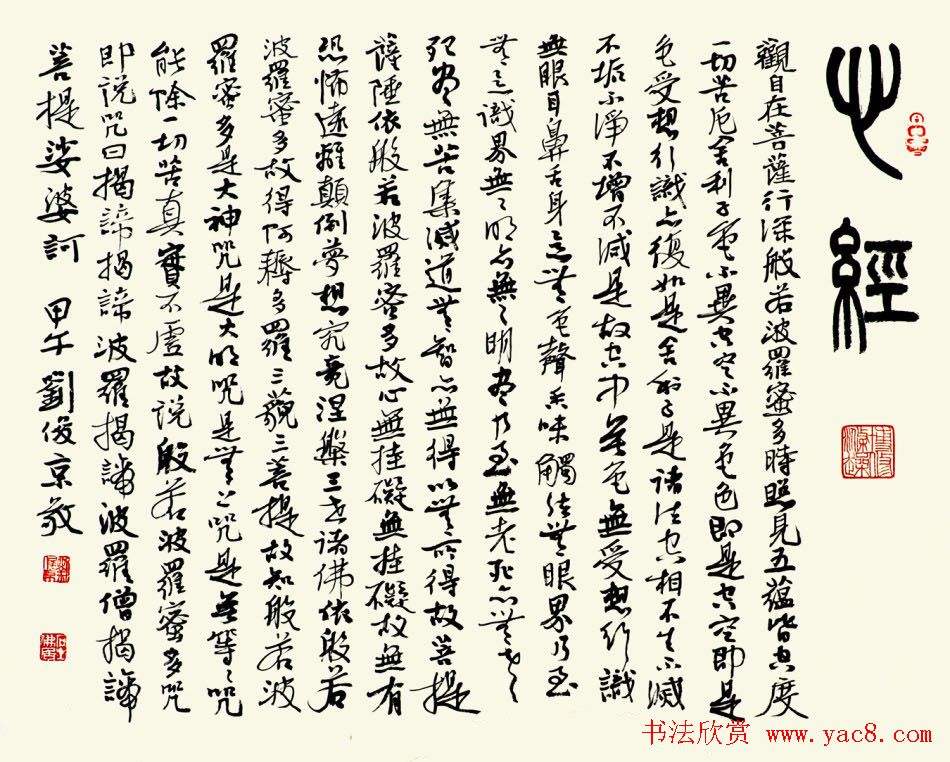 心經
觀自在菩薩行深般若波羅蜜多時照見五蘊皆空度
一切苦厄舍利子色不異空空不異色色即是空空即是
色受想行識亦復如是舍利子是諸法空相不生不滅
不垢不淨不增不減是故空中無色無受想行識
無眼耳鼻舌身意無色聲香味觸法無眼界乃至
無意識界無〻明亦無〻明盡乃至無老死亦無老
死盡無苦集滅道無智亦無得以無所得故菩提
薩埵依般若波羅蜜多故心無挂礙無挂礙故無有
恐怖遠離顛倒夢想究竟涅槃三世諸佛依般若
波羅蜜多故得阿耨多羅三藐三菩提故知般若波
羅蜜多是大神咒是大明咒是無上咒是無等〻咒
能除一切苦真實不虛故說般若波羅蜜多咒
即說咒曰揭諦揭諦波羅揭諦波羅僧揭諦
菩提娑婆訶 甲午 劉俊京敬
书法欣赏 www.yac8.com